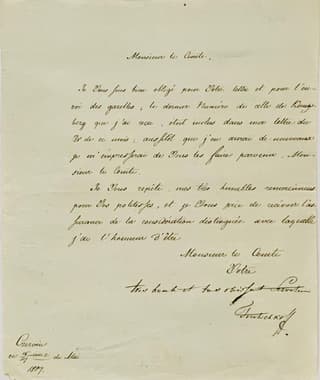 Monsieur le Comte.
Je Vous suis bien obligé pour Votre lettre et pour l'en-
voi des gazettes, le dernier Numéro de celle de Königs-
berg que j'ai reçu, etoit inclus dans ma lettre du
de ce mois, aussitôt que j'en aurai de nouveaux
je m'empresserai de Vous les faire parvenir, Mon-
sieur le Comte.
Je Vous repète mes très humbles remerciemens
pour Vos politesses, et je Vous prie de recevoir l'as-
surance de la considération distinguée avec laquelle
j'ai l'honneur d'être
Monsieur le Comte
Votre
très humble et très obéissant Serviteur
ce de Mai
1807.